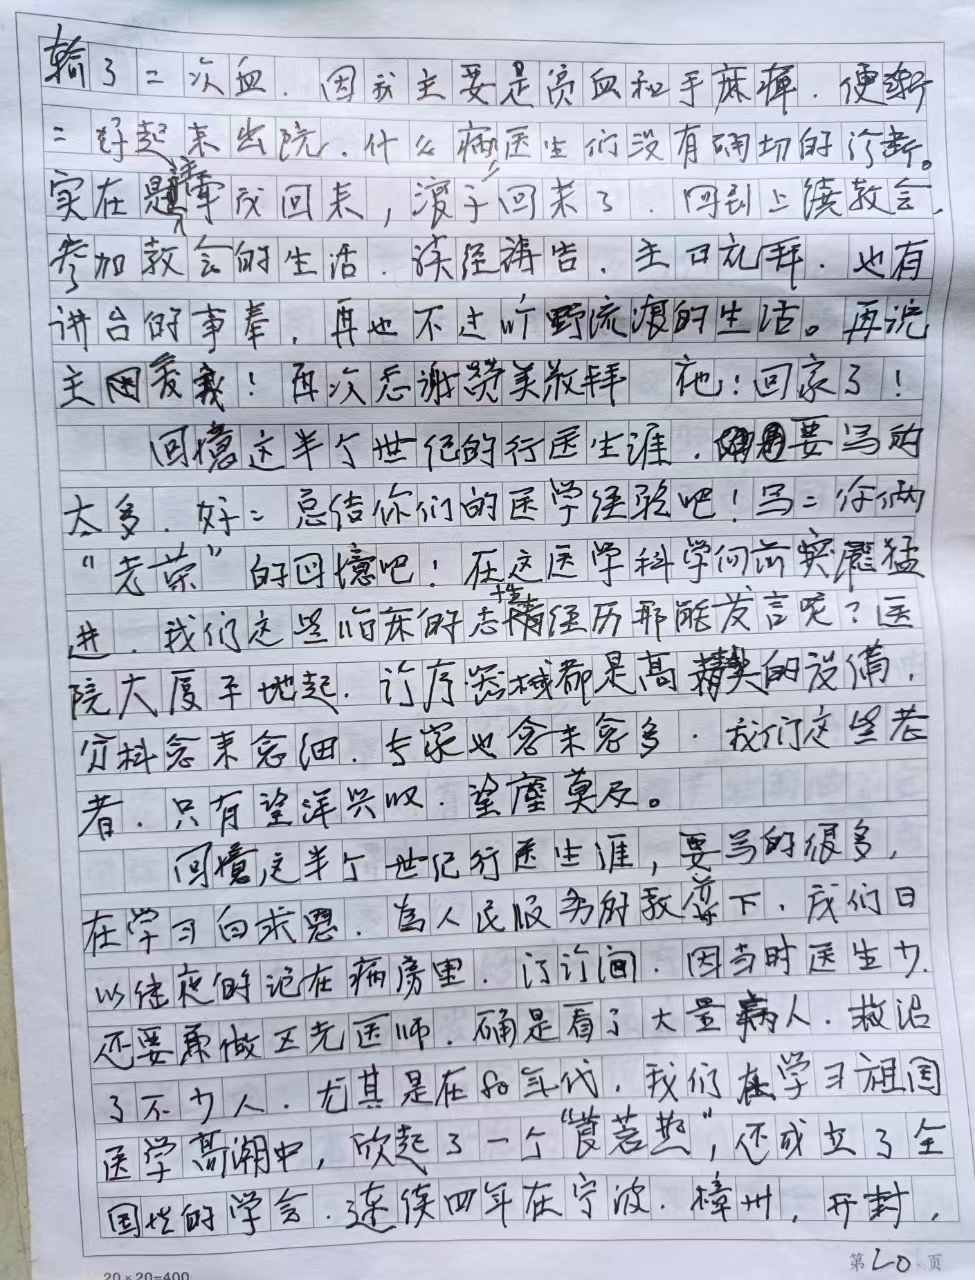 输了二次血.因我主要是贫血和手麻痺.便渐
二好起来出院.什么病医生们没有确切的诊断。
实在是牵我回来,浪子回来了.回到上饶教会,
参加教会的生活.读经祷告.主日礼拜.也有
讲台的事奉,再也不过旷野流浪的生活。再说
主爱我!再次感谢赞美敬拜 祂!回家了!
回憶这半个世纪的行医生涯.要写的
太多.好二总结你们的医学经验吧!写二你俩
“老荣”的回憶吧!在这医学科学向前突飛猛
进.我们这些临床的老情经历那能发言呢?医
院大厦平地起.诊疗器械都是高精尖的设備,
分科愈来愈细.专家也愈来愈多.我们这些老
者.只有望洋兴叹.望塵莫及。
回憶这半个世记行医生涯,要写的很多,
在学习白求恩.為人民服务的教导下.我们日
以继夜的记在病房里.门诊间.因当时医生少.
还要兼做医师.确是看了大量病人.救治
了不少人.尤其是在80年代,我们在学习祖国
医学高潮中,欣起了一个“莨菪热”,还成立了全
国性的学会.连续四年在宁波.樟州,开封,
第20页
20×20=400